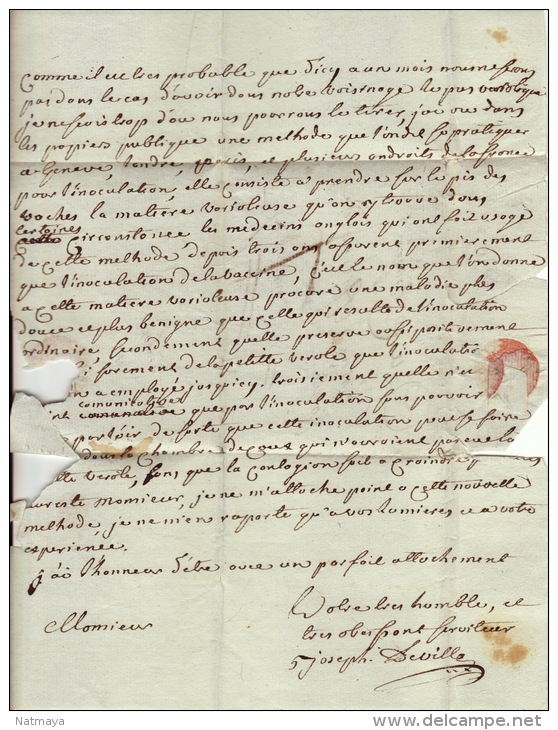 Comme il est tres probable que d'icy a un mois nous ne serons
pas dans le cas d'avoir dans notre voisinage le pus varolique
je ne sais trop d'ou nous pourrons le tirer, j'ai vu dans
les papiers publique une methode que l'on dit se pratiquer
a Geneve, Londre, paris, et plusieurs endroits de la france
pour l'inoculation, elle consiste a prendre sur le pis des
vaches la matiere varioleuse qu'on y trouve dans
certaines circonstance les medecins anglois qui ont fait usage
de cette methode depuis trois ans assurent premierement
que l'inoculation de la vaccine, c'est le nom que l'on donne
a cette matiere varioleuse procure une maladie plus
douce et plus benigne que celle qui resulte de l'inoculation
ordinaire, secondement quelle preserve aussi positivement
si forement de la petitte verole que l'inoculatio
n a employé jusqu'icy, troisiement quelle n'es
communicative que par l'inoculation sans pouvoir
par l'air de sorte que cette inoculation peut se faire
dans la chambre de ceux qui n'auroient pas eu la
tte verole, sans que la contagion soit a craindre
au reste Monsieur, je ne m'attache point a cette nouvelle
methode, je ne m'en raporte qu'a vos lumieres et a votre
experience.
j'ai l'honneur d'etre avec un parfait attachement
Monsieur
Votre tres humble, et
tres obeissant serviteur
joseph Deville
Natmaya
www.delcampe.net